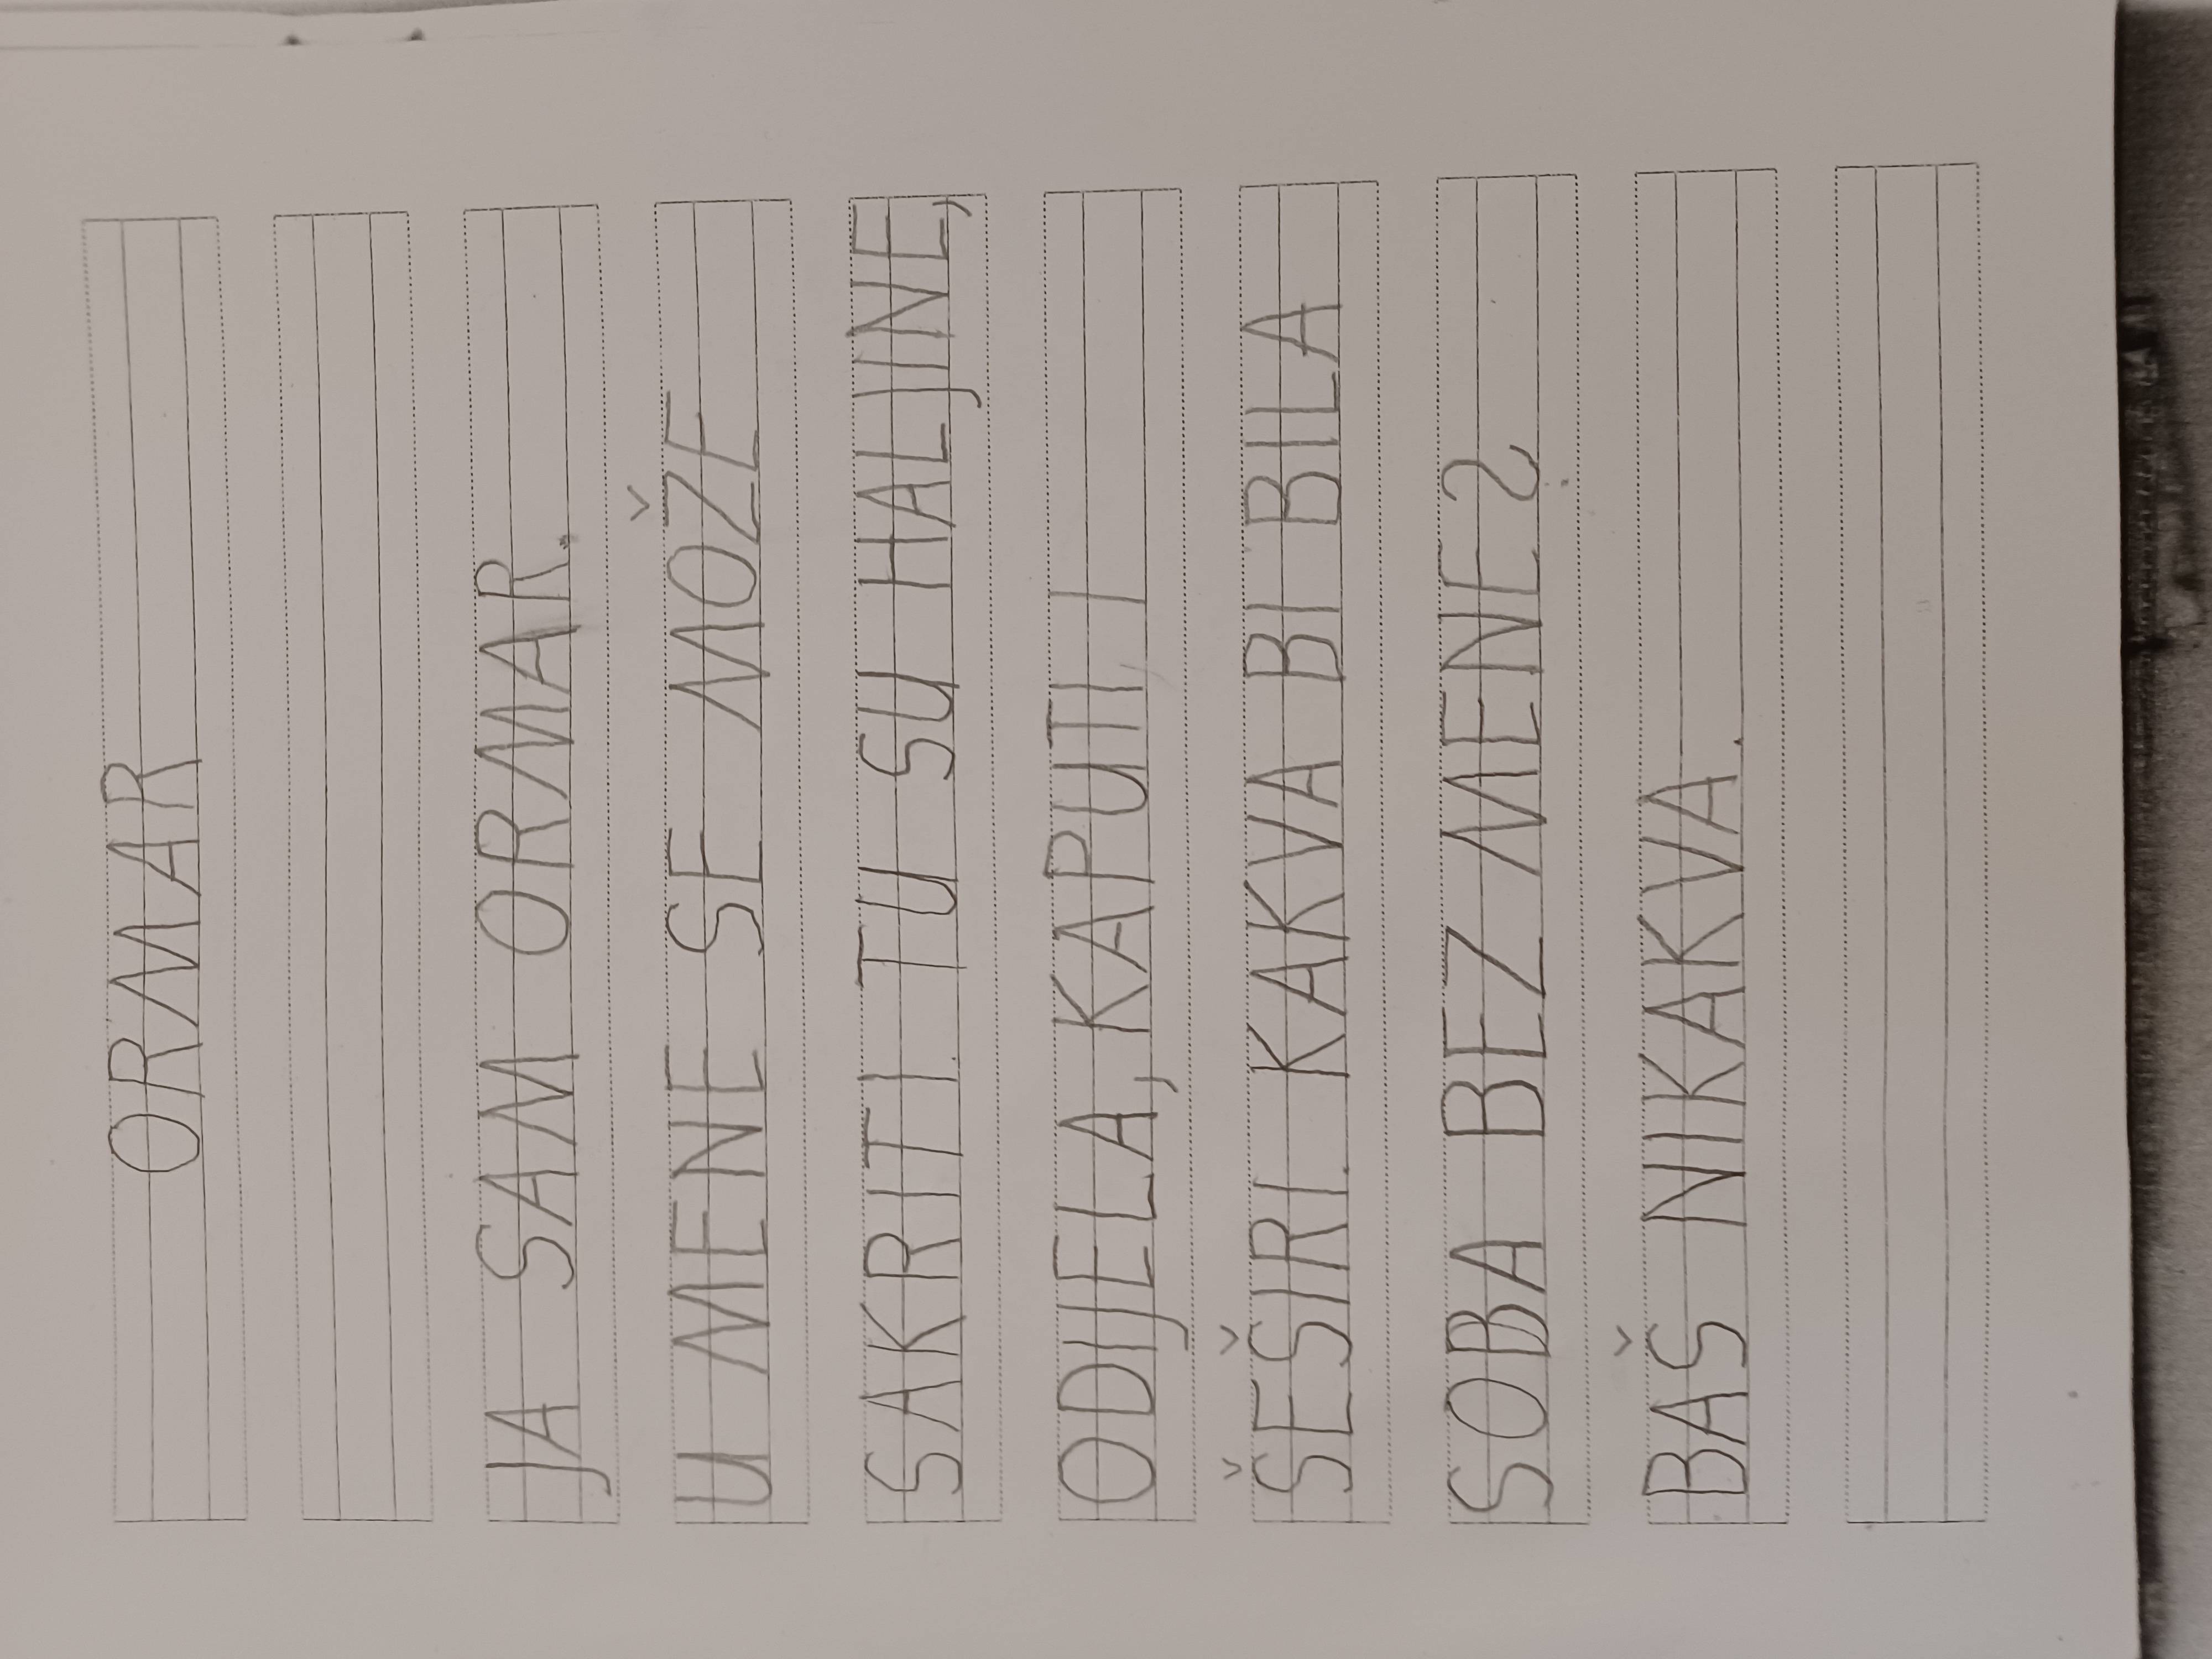 ORMAR
JA SAM ORMAR.
U MENE SE MOŽE
SAKRITI. TU SU HALJINE,
ODIJELA, KAPUTI I
ŠEŠIRI. KAKVA BI BILA
SOBA BEZ MENE?
BAŠ NIKAKVA.